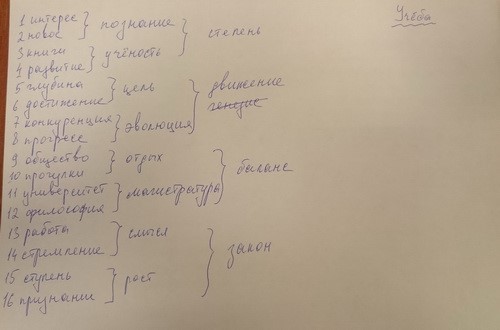 Учёба
1 интерес
2 новое
познание
3 книги
4 развитие
учёность
степень
5 глубина
6 достижение
цель
7 конкуренция
8 прогресс
эволюция
движение
генезис
9 общество
10 прогулки
отдых
11 университет
12 философия
магистратура
баланс
13 работы
14 стремление
смысл
15 ступень
16 признание
рост
закон